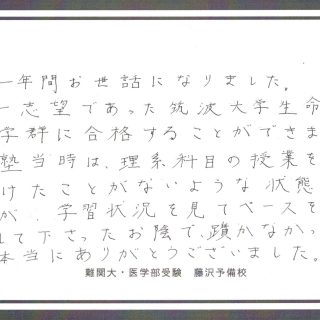 一年間お世話になりました。
一志望であった筑波大学生命
学群に合格することができま
塾当時は、理系科目の授業を
けたことがないような状態
が、学習状況を見てペースを
して下さったお陰で、躓かなかっ
本当にありがとうございました。
難関大・医学部受験　藤沢予備校